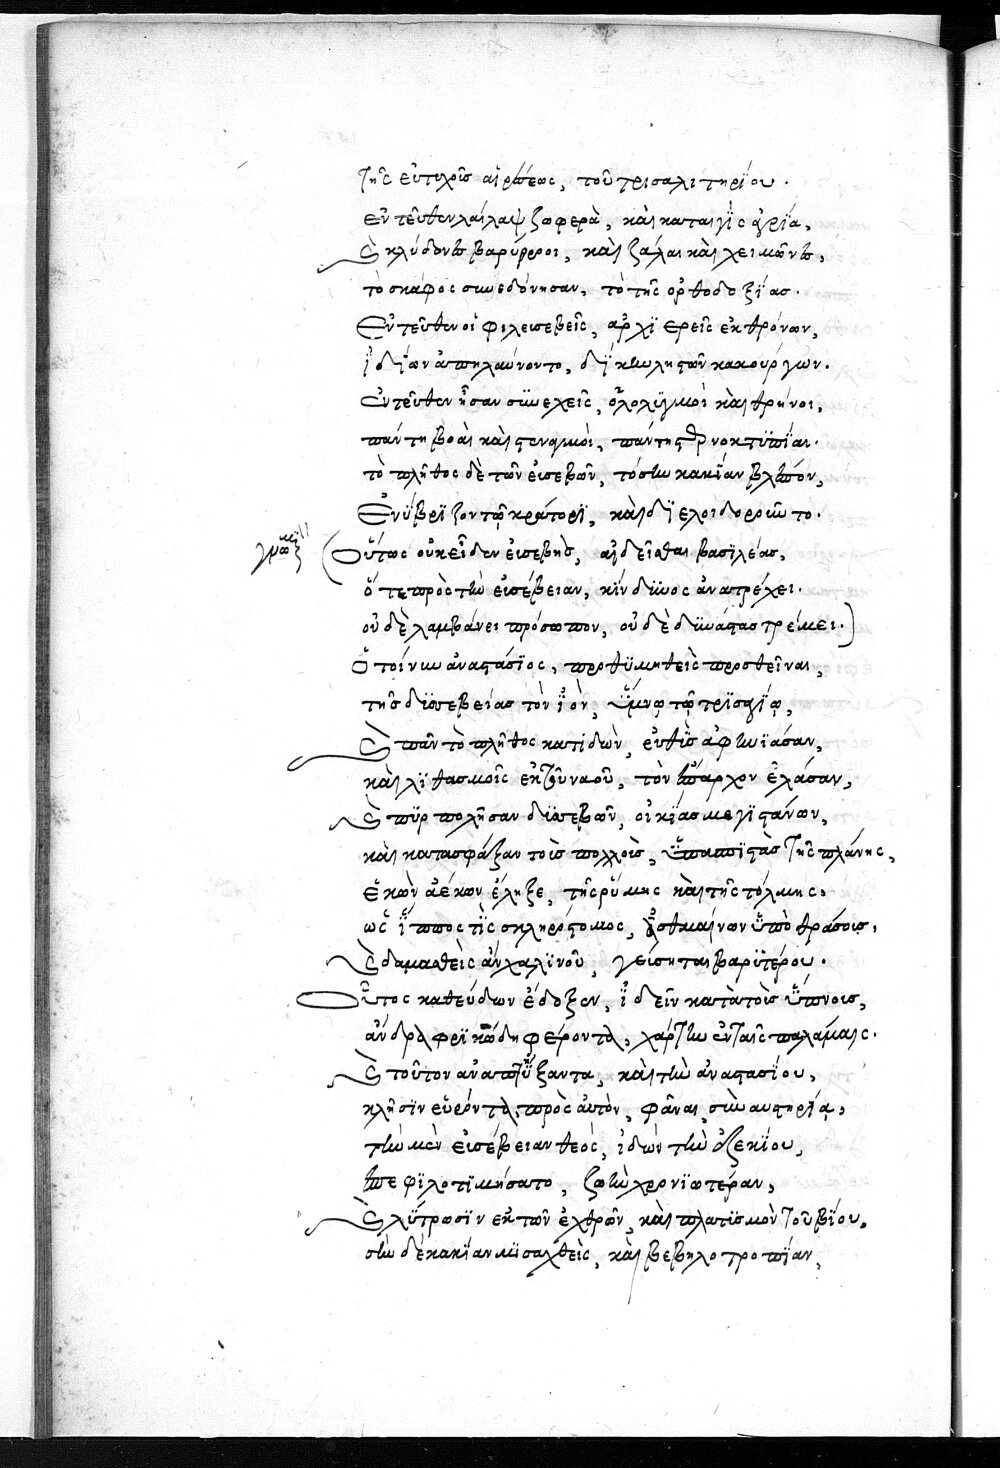 τῆς εὐτυχοῦς αἱρέσεως, τοῦ τρισαλιτηρίου.
ἐντεῦθεν λαῖλαψ ζοφερὰ, καὶ καταιγὶς ἀγρία,
καὶ κλύδωνες βαρύβρομοι, καὶ ζάλαι καὶ χειμῶνες,
τὸ σκάφος συνεδόνησαν, τὸ τῆς ὀρθοδοξίας.
Ἐντεῦθεν οἱ φιλευσεβεῖς, ἀρχιερεῖς ἐκ θρόνων,
ἰδίων ἀπηλαύνοντο, δίκην λῃστῶν κακούργων.
ἐντεῦθεν ἦσαν συνεχεῖς, ὀλολυγμοὶ καὶ θρῆνοι,
πάντη βοαὶ καὶ στεναγμοὶ, πάντη στερνοκτυπίαι.
τὸ πλῆθος δὲ τῶν εὐσεβῶν, τόσην κακίαν βλέπον,
Ἐνύβριζον τῷ κράτορι, καὶ διελοιδοροῦντο.
Οὕτως οὐκ εἶδεν εὐσεβὴς, αἰδεῖσθαι βασιλέας,
ὅτε πρὸς τὴν εὐσέβειαν, κίνδυνος ἀνατρέχει.
οὐδὲ λαμβάνει πρόσωπον, οὐδὲ δυνάστας τρέμει.
Ὁ τοίνυν ἀναστάσιος, προθυμηθεὶς προσθεῖναι,
τῆς δυσσεβείας τὸν ἰὸν, ὕμνῳ τῷ τρισαγίῳ,
καὶ πᾶν τὸ πλῆθος κατιδὼν, εὐθὺς ἀφηνιάσαν,
καὶ λιθασμοῖς ἐκ τοῦ ναοῦ, τὸν ἔπαρχον ἐλάσαν,
καὶ πυρπολῆσαν δυσσεβῶν, οἰκίας μεγιστάνων,
καὶ κατασφάξαν τοὺς πολλοὺς, ὑπασπιστὰς τῆς πλάνης,
ἑκὼν ἀέκων ἔληξε, τῆς ῥύμης καὶ τῆς τόλμης,
ὡς ἵππος τὶς σκληρόστομος, ἀσθμαίνων ὑπὸ θράσους,
καὶ δαμασθεὶς ἀγχαλινοῦ, γεύσηται βαρυτέρου.
Οὗτος καθεύδων ἔδοξεν, ἰδεῖν κατὰ τοὺς ὕπνους,
ἄνδρα φρικώδη φέροντα, χάρτην ἐν ταῖς παλάμαις.
καὶ τοῦτον ἀναπτύξαντα, καὶ τὴν ἀναστασίου,
κλῆσιν εὑρόντα, πρὸς αὐτὸν, φᾶναι σὺν αὐστηρίᾳ,
τὴν μὲν εὐσέβειαν θεὸς, ἰδὼν τὴν ἐζεκίου,
ἐπεφιλοτιμήσατο, ζωὴν χρονιωτέραν,
καὶ λύτρωσιν ἐκ τῶν ἐχθρῶν, καὶ πλατυσμὸν τοῦ βίου.
σὴν δὲ κακίαν μυσαχθεὶς, καὶ βεβηλοτροπίαν,